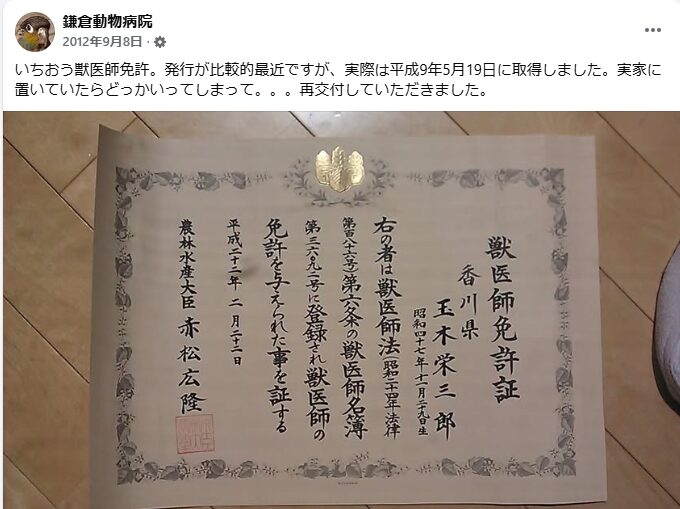 鎌倉動物病院
2012年9月8日
いちおう獣医師免許。発行が比較的最近ですが、実際は平成9年5月19日に取得しました。実家に
置いていたらどっかいってしまって。。。再交付していただきました。
獣医師免許証
香川県
玉木栄三郎
昭和四十七年十一月二十九日生
右の者は獣医師法(昭和二十四年法律
第百八十六号)第六条の獣医師名簿
第三六〇九二号に登録され獣医師の
免許を与えられた事を証する
平成二十二年二月二十二日
農林水産大臣 赤松広隆